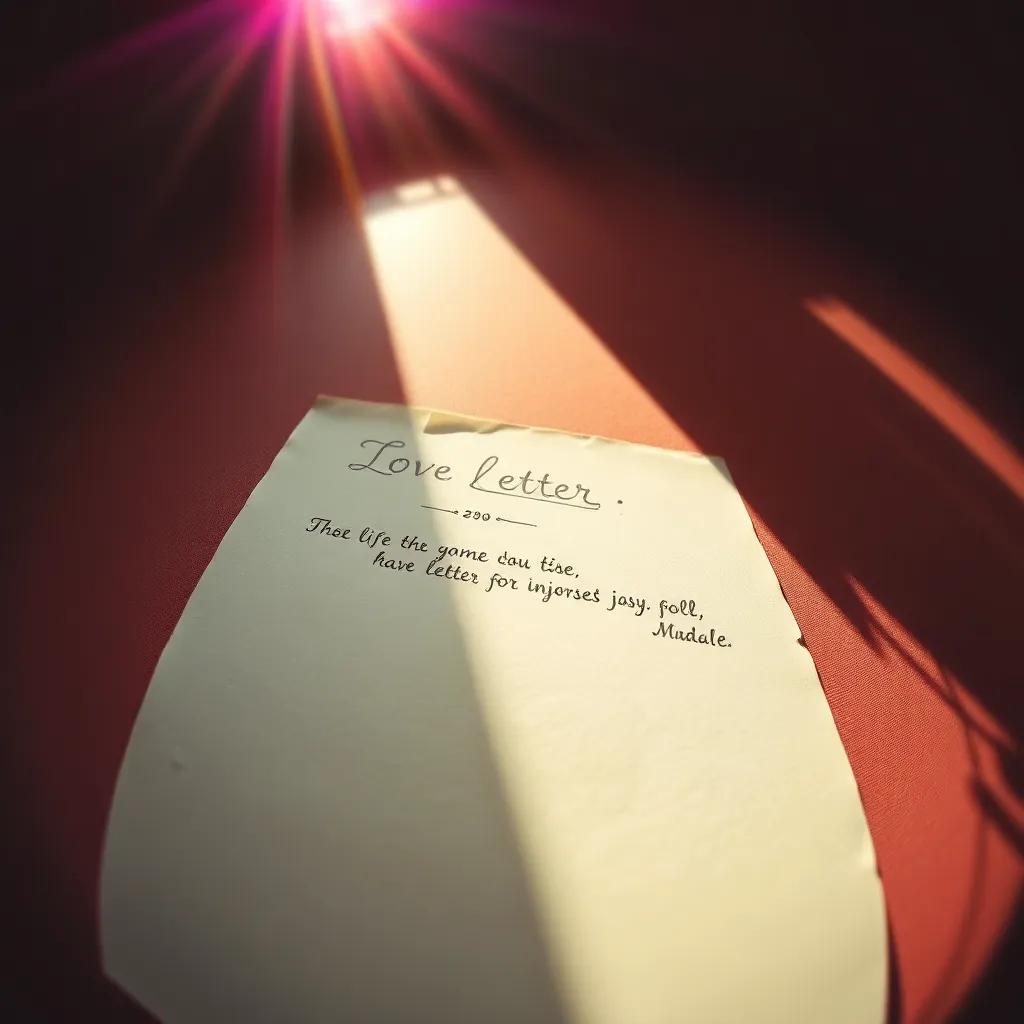 Love Letter.
290
Thoe life the game dou tise,
have letter for injorses jasy. foll,
Mudale.